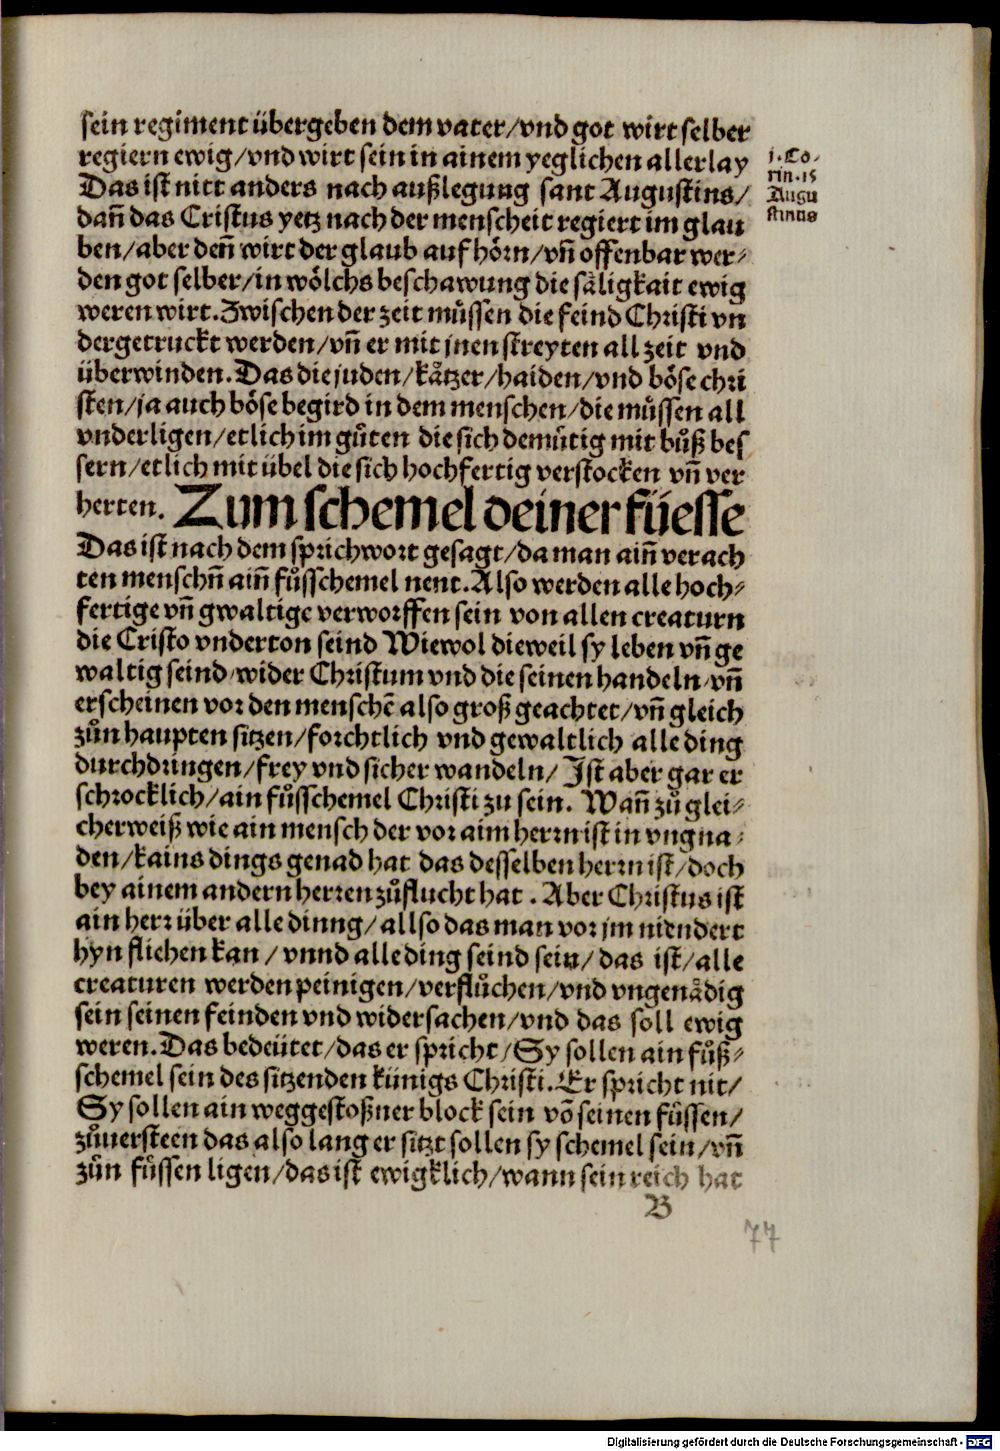 sein regiment übergeben dem vater/vnd got wirt selber
regiern ewig/vnd wirt sein in ainem yeglichen allerlay
Das ist nitt anders nach außlegung sant Augustins/
dañ das Cristus yetz nach der menscheit regiert im glau
ben/aber deñ wirt der glaub auf hörn/vñ offenbar wer-
den got selber/in wölchs beschawung die säligkait ewig
weren wirt. Zwischen der zeit müssen die feind Christi vn
dergetruckt werden/vñ er mit jnen streyten all zeit vnd
überwinden. Das die juden/kätzer/haiden/vnd böse chri
sten/ja auch böse begird in dem menschen/die müssen all
vnderligen/etlich im gůten die sich demütig mit bůß bes
sern/etlich mit übel die sich hochfertig verstocken vñ ver
herten. Zum schemel deiner füesse
Das ist nach dem sprichwort gesagt/da man aiñ verach
ten menschñ aiñ fůsschemel nent. Also werden alle hoch-
fertige vñ gwaltige verworffen sein von allen creaturn
die Cristo vnderton seind Wiewol dieweil sy leben vñ ge
waltig seind/wider Christum vnd die seinen handeln/vñ
erscheinen vor den menschē also groß geachtet/vñ gleich
zůn haupten sitzen/forchtlich vnd gewaltlich alle ding
durchdringen/frey vnd sicher wandeln/ Ist aber gar er
schrocklich/ain fůsschemel Christi zu sein. Wañ zů glei-
cherweiß wie ain mensch der vor aim herrn ist in vngna-
den/kains dings genad hat das desselben herrn ist/doch
bey ainem andern herren zůflucht hat. Aber Christus ist
ain herr über alle dinng/allso das man vor jm niendert
hyn fliehen kan/vnnd alle ding seind sein/das ist/alle
creaturen werden peinigen/verflůchen/vnd vngenädig
sein seinen feinden vnd widersachen/vnd das soll ewig
weren. Das bedeütet/das er spricht/Sy sollen ain fůß-
schemel sein des sitzenden künigs Christi. Er spricht nit/
Sy sollen ain weggestoßner block sein võ seinen füssen/
zůuersteen das also lang er sitzt sollen sy schemel sein/vñ
zůn füssen ligen/das ist ewigklich/wann sein reich hat
B
1. Co-
rin. 15
Augu
stinus
77
Digitalisierung gefördert durch die Deutsche Forschungsgemeinschaft - DFG